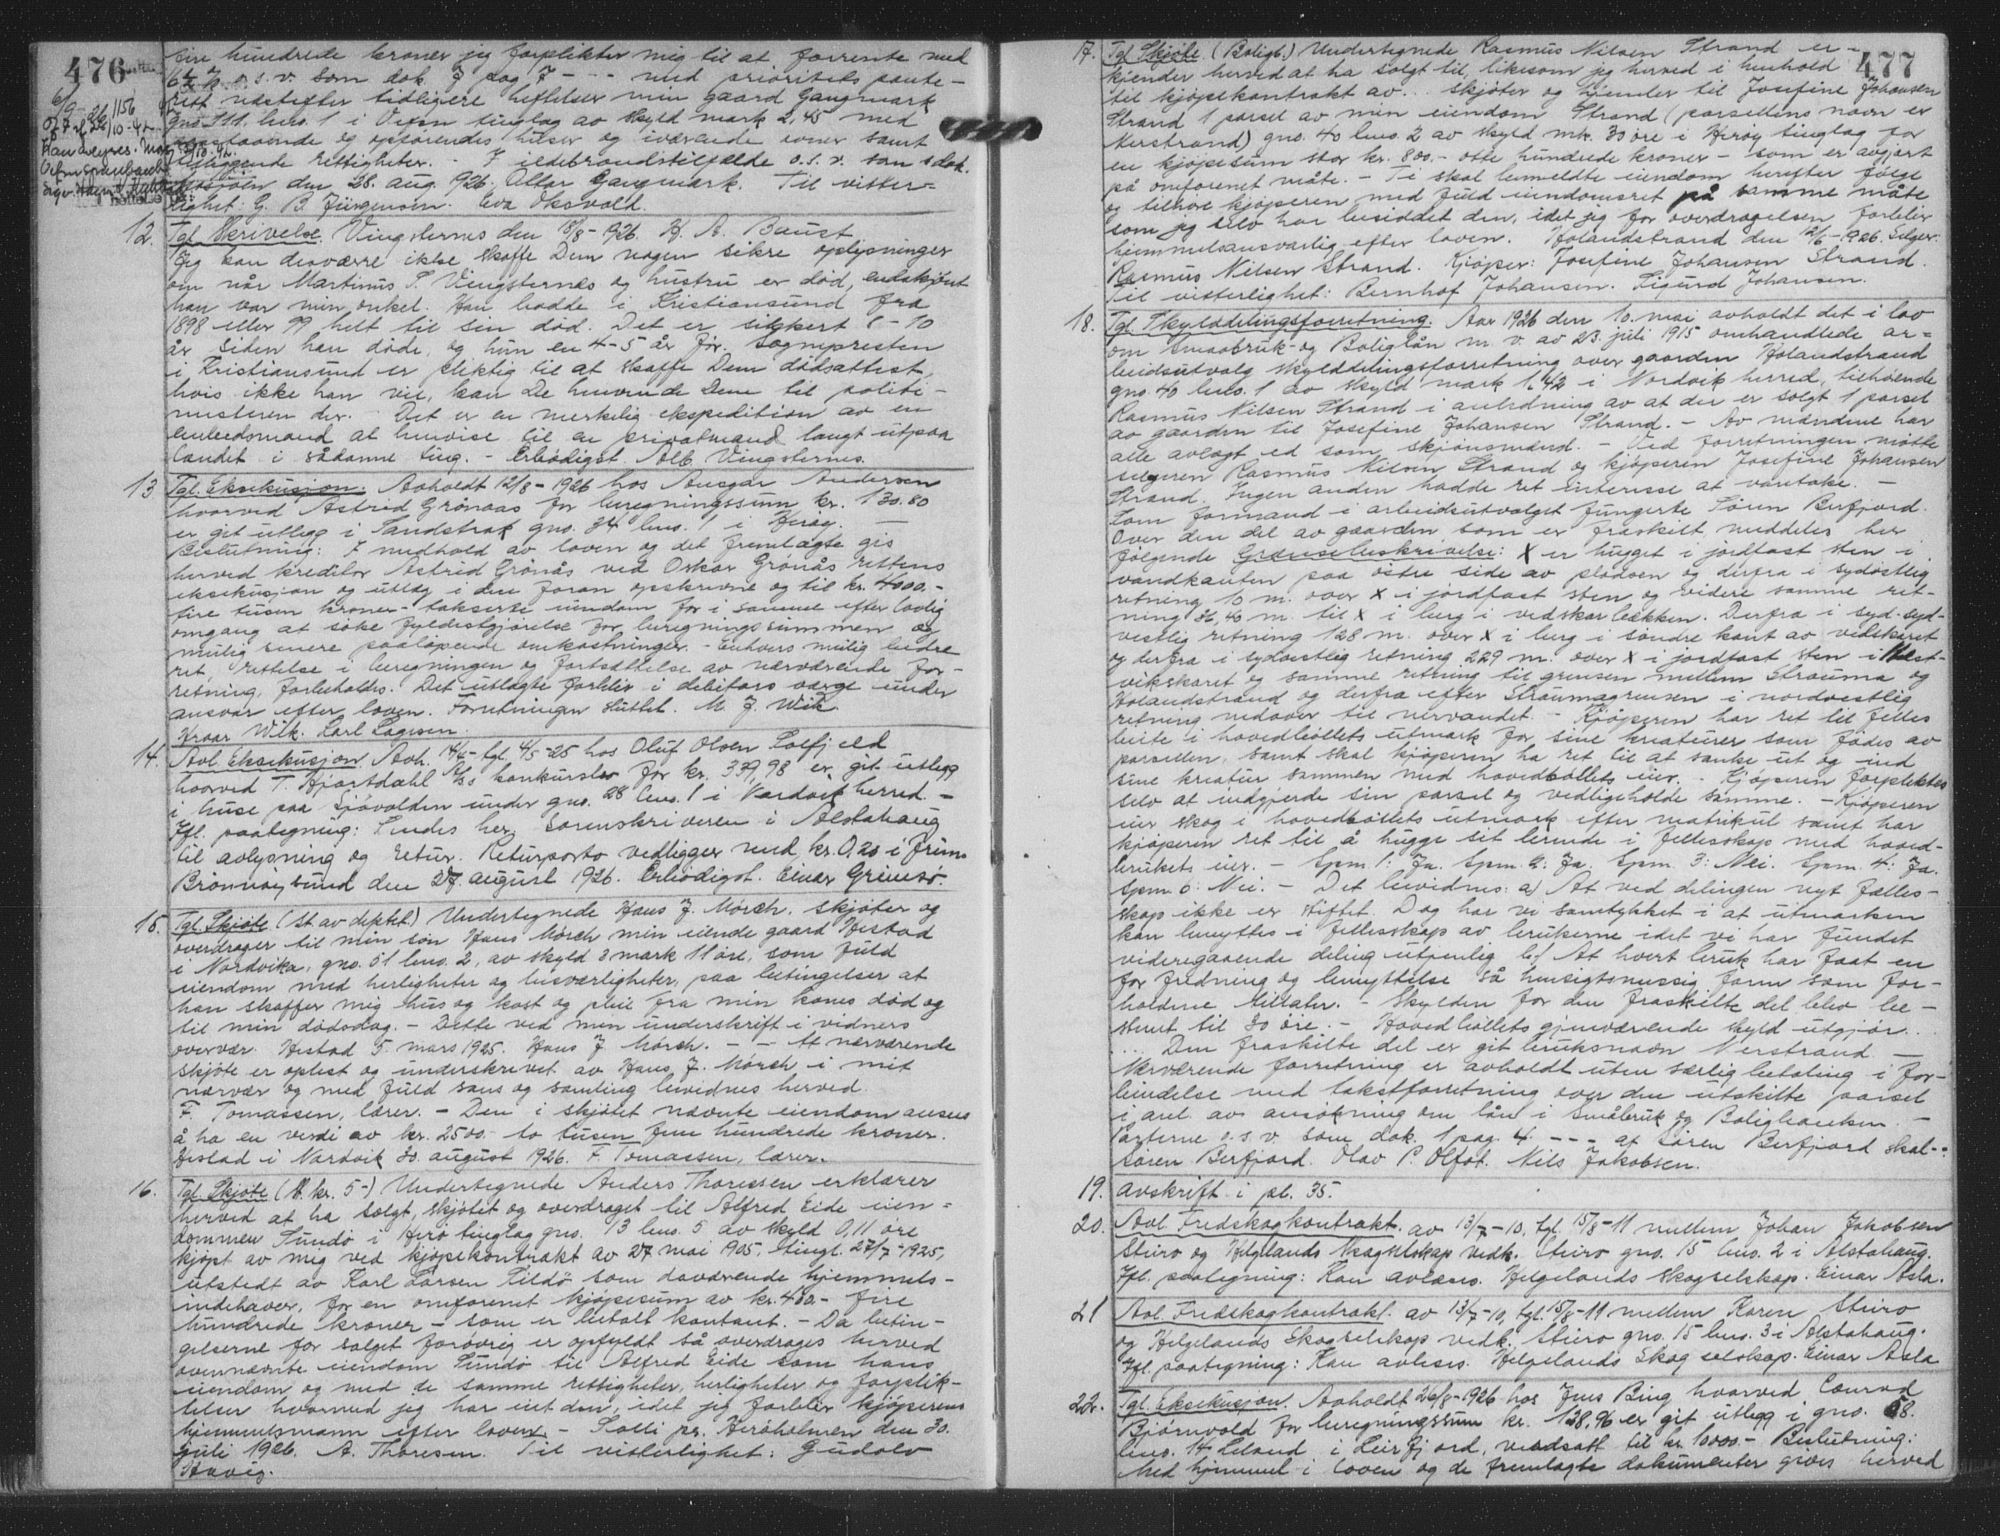 476
fire hundrede kroner jeg forplikter mig til at forrente med
6½ % o.s.v. som dok 7 pag 7 - - - med prioritets pante-
rett næstefter tidligere heftelser min gaard Gangmark
gno 111, bno. 1 i Vefsn tinglag av skyld mark 2,45 med
paastaaende og opførendes huser og iværende ovner samt
tilliggende rettigheter. - I ildebrandstilfælde o.s.v. som s dok.
Mosjøen den 28. aug. 926. Ottar Gangmark. Til vitter=
lighet: G. B. Jürgensen. Eva Oksvold.
12. Tgl. Skrivelse. Vingsternes den 18/8-1926. H. A. Baust
Jeg kan desværre ikke skaffe Dem nogen sikre oplysninger
om når Martinus P. Vingsternes og hustru er død, endskjønt
han var min onkel. Han bodde i Kristiansund fra
1898 eller 99 helt til sin død. Det er sikkert 8-10
år siden han døde, og hun en 4-5 år før. Sognepresten
i Kristiansund er pliktig til at skaffe Dem dødsattest,
hvis ikke han vil, kan De henvende Dem til politi-
mesteren der. Det er en merkelig ekspedition av en
embedsmand at henvise til en privatmand langt utpaa
landet i sådanne ting. - Erbødigst Alb. Vingsternes.
13 Tgl. Eksekusjon. Avholdt 12/8-1926 hos Ansgar Andersen
hvorved Astrid Grønaas for beregningssum kr. 130.80
er git utlegg i Sandstrak gno. 34 bno. 1 i Herøy. -
Beslutning: I medhold av loven og det fremlagte gis
herved kreditor Astrid Grønås ved Oskar Grønås rettens
eksekusjon og utlæg i den foran opskrevne og til kr. 4000.-
fire tusen kroner - takserte eiendom for i samme efter lovlig
omgang at søke fyldestgjørelse for beregningssummen og
mulig senere paaløpende omkostninger. - Enhvers mulig bedre
ret, rettelse i beregningen og fortsættelse av nærværende for-
retning, forbeholdes. Det utlagte forblir i debitors værge under
ansvar efter loven. Forretningen sluttet. M. J. Wik
Kraar Wik. Karl Lagesen.
14. Avl. Eksekusjon. Avh. 14/4- tgl. 4/5-25 hos Oluf Olsen Solfjeld
hvorved T. Hjortdahl A/S konkursbo for kr. 339,98 er git utlegg
i huse paa Sjåvolden under gno. 28 bno. 1 i Nordvik herred. -
Ifl. paategning: Sendes her. Sorenskriveren i Alstahaug
til avlysning og retur. Returporto vedligger med kr. 0,20 i frim.
Brønnøysund den 27. august 1926. Erbødigst. Einar Grimsø.
15. Tgl. Skjøte (St av dipktet.) Undertegnede Hans J. Mørch. skjøter og
overdrager til min søn Hans Mørch min eiende gaard Hestad
i Nordvika, gno. 51 bno. 2, av skyld 3 mark 11 øre, som fuld
eiendom med herligheter og besværligheter, paa betingelser at
han skaffer mig hus og kost og pleie fra min kones død og
til min dødsdag. - Dette ved men underskrift i vidners
overvær. Hestad 5. mars 1925. Hans J Mørch. - - At nærværende
skjøte er oplest og underskrevet av Hans J. Mørch i mit
nærvær og med fuld sans og samling bevidnes herved.
F. Tomassen, lærer. - Den i skjøtet nævnte eiendom ansees
å ha en verdi av kr. 2500- to tusen fem hundrede kroner.
Hestad i Nordvik 30. august 1926. F. Tomassen, lærer.
16. Tgl. Skjøte (St. kr. 5-) Undertegnede Anders Thoressen erklærer
herved at ha solgt, skjøtet og overdraget til Alfred Eide eien=
dommen Sundø i Herø tinglag gno. 13 bno. 5 av skyld 0,11 øre
kjøpt av mig ved kjøpekontrakt av 27 mai 1905, tingl. 27/7-1925,
utstedt av Karl Larsen Tildø som daværende hjemmels-
indehaver, for en omforenet kjøpesum av kr. 400.- fire
hundrede kroner - som er betalt kontant. - Da betin-
gelserne for salget forøvrig er opfyldt så overdrages herved
ovennævnte eiendom Sundø til Alfred Eide som hans
eiendom og med de samme rettigheter, herligheter og forplik-
telser hvormed jeg har eiet den, idet jeg forblir kjøperens
hjemmelsmann efter loven. - Solli pr. Herøholmen den 30.
juli 1926. A. Thoresen. Til vitterlighet: Gudolv
Havig.
477
17. Tgl. Skjøte (Boligb.) Undertegnede Rasmus Nilsen Strand er-
kjender herved at ha solgt til, likesom jeg herved i henhold
til kjøpekontrakt av... skjøter og hjemler til Josefine Johansen
Strand 1 parsel av min eiendom Strand (parsellens navn er
Nerstrand) gno. 40 bno. 2 av skyld mrk. 30 øre i Herøy tinglag for
en kjøpesum stor kr. 800.- otte hundrede kroner - som er avgjort
på omforenet måte. - Ti skal bemeldte eiendom herefter følge
og tilhøre kjøperen med fuld eiendomsret på samme måte
som jeg selv har besiddet den, idet jeg for overdragelsen forblir
hjemmelsansvarlig efter loven. Holandstrand den 12/6-1926. Selger:
Rasmus Nilsen Strand. Kjøper: Josefine Johansen Strand.
Til vitterlighet: Bernhof Johansen. Sigurd Johansen.
18. Tgl. Skylddelingsforretning. Aar 1926 den 10. mai avholdt det i lov
om Smaabruk- og Boliglån m. v. av 23. juli 1915 omhandlede ar=
beidsutvalg skylddelingsforretning over gaarden Holandstrand
gno. 40 bno. 1 av skyld mark 1,42 i Nordvik herred, tilhørende
Rasmus Nilsen Strand i anledning av at der er solgt 1 parsel
av gaarden til Josefine Johansen Strand. - Av mændene har
alle avlagt ed som skjønsmænd. - Ved forretningen møtte
selgeren Rasmus Nilsen Strand og kjøperen Josefine Johansen
Strand. Ingen anden hadde ret interesse at varetake. -
Som formand i arbeidsutvalget fungerte Søren Berfjord.
Over den del av gaarden som er fraskilt meddeles her
følgende Grænsebeskrivelse: X er hugget i jordfast sten i
vandkanten paa østre side av stødsen og derfra i sydøstlig
retning 10 m. over X i jordfast sten og videre samme ret-
ning 36,40 m. til X i berg i vedskar bækken. Derfra i syd-syd-
vestlig retning 128 m. over X i berg i søndre kant av vedskaret
og derfra i sydvestlig retning 229 m. over X i jordfast sten i Hest-
vikskaret og samme retning til grensen mellem Strauma og
Holandstrand og derfra efter Straumagrensen i nordvestlig
retning nedover til nervandet. - Kjøperen har ret til fælles
beite i hovedbøllets utmark for sine kreaturer som fødes av
parsellen, samt skal kjøperen ha ret til at sanke ut og ind
sine kreatur sammen med hovedbøllets eier. - Kjøperen forpliktes
selv at indgjerde sin parsel og vedlikeholde samme. - Kjøperen
eier skog i hovedbøllets utmark efter matrikul samt har
kjøperen ret til å hugge sit brende i fellesskap med hoved-
brukets eier. - Spm 1: Ja. Spm. 2: Ja. Spm. 3: Nei. Spm. 4: Ja.
Spm. 5: Nei. - Det bevidnes: a) At ved delingen nyt fælles-
skap ikke er stiftet. Dog har vi samtykket i at utmarken
kan benyttes i fellesskap av brukerne idet vi har fundet
videregaaende deling utjenlig b) At hvert bruk har faat en
for fredning og benyttelse så hensigtsmessig form som for-
holdene tillater. - Skylden for den fraskilte del blev be-
stemt til 30 øre. - Hovedbøllets gjenværende skyld utgjør...
... Den fraskilte del er git bruksnavn Nerstrand. -
Nærværende forretning er avholdt uten særlig betaling i for-
bindelse med takstforretning over den utskilte parsel
i anl. av ansøkning om lån i Småbruk og Boligbanken. -
Parterne o.s.v. som dok. 1 pag. 4. - - - at Søren Berfjord skal -:
Søren Berfjord. Olav P. Olfot. Nils Jakobsen.
19. avskrift i pl. 35.
20. Avl. Fredskogkontrakt. av 13/7-10, tgl. 15/8-11 mellem Johan Jakobsen
Stiro og Helgelands Skogselskap vedk. Stiro gno. 15 bno. 2 i Alstahaug.
Ifl. paategning: Kan avlæses. Helgelands skogselskap. Einar Asla.
21 Avl. Fredskogkontrakt. av 13/7-10, tgl. 15/8-11 mellem Karen Stiro
og Helgelands Skogselskap vedk. Stiro gno. 15 bno. 3 i Alstahaug.
Ifl. paategning: Kan avleses. Helgelands Skogselskap. Einar Asla
22. Tgl. Eksekusjon. Avholdt 26/8-1926 hos Jens Bing hvorved Conrad
Bjørnvold for beregningssum kr. 138,96 er git utlegg i gno. 58.
bno. 14 Leland i Leirfjord, verdsatt til kr. 10000.- Beslutning:
Med hjemmel i loven og de fremlagte dokumenter gives herved